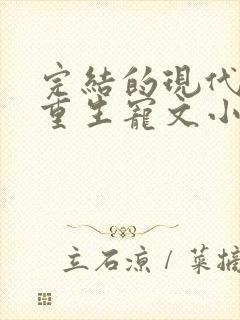 完結的現代
重生寵文小
立石凉 / 葉摘